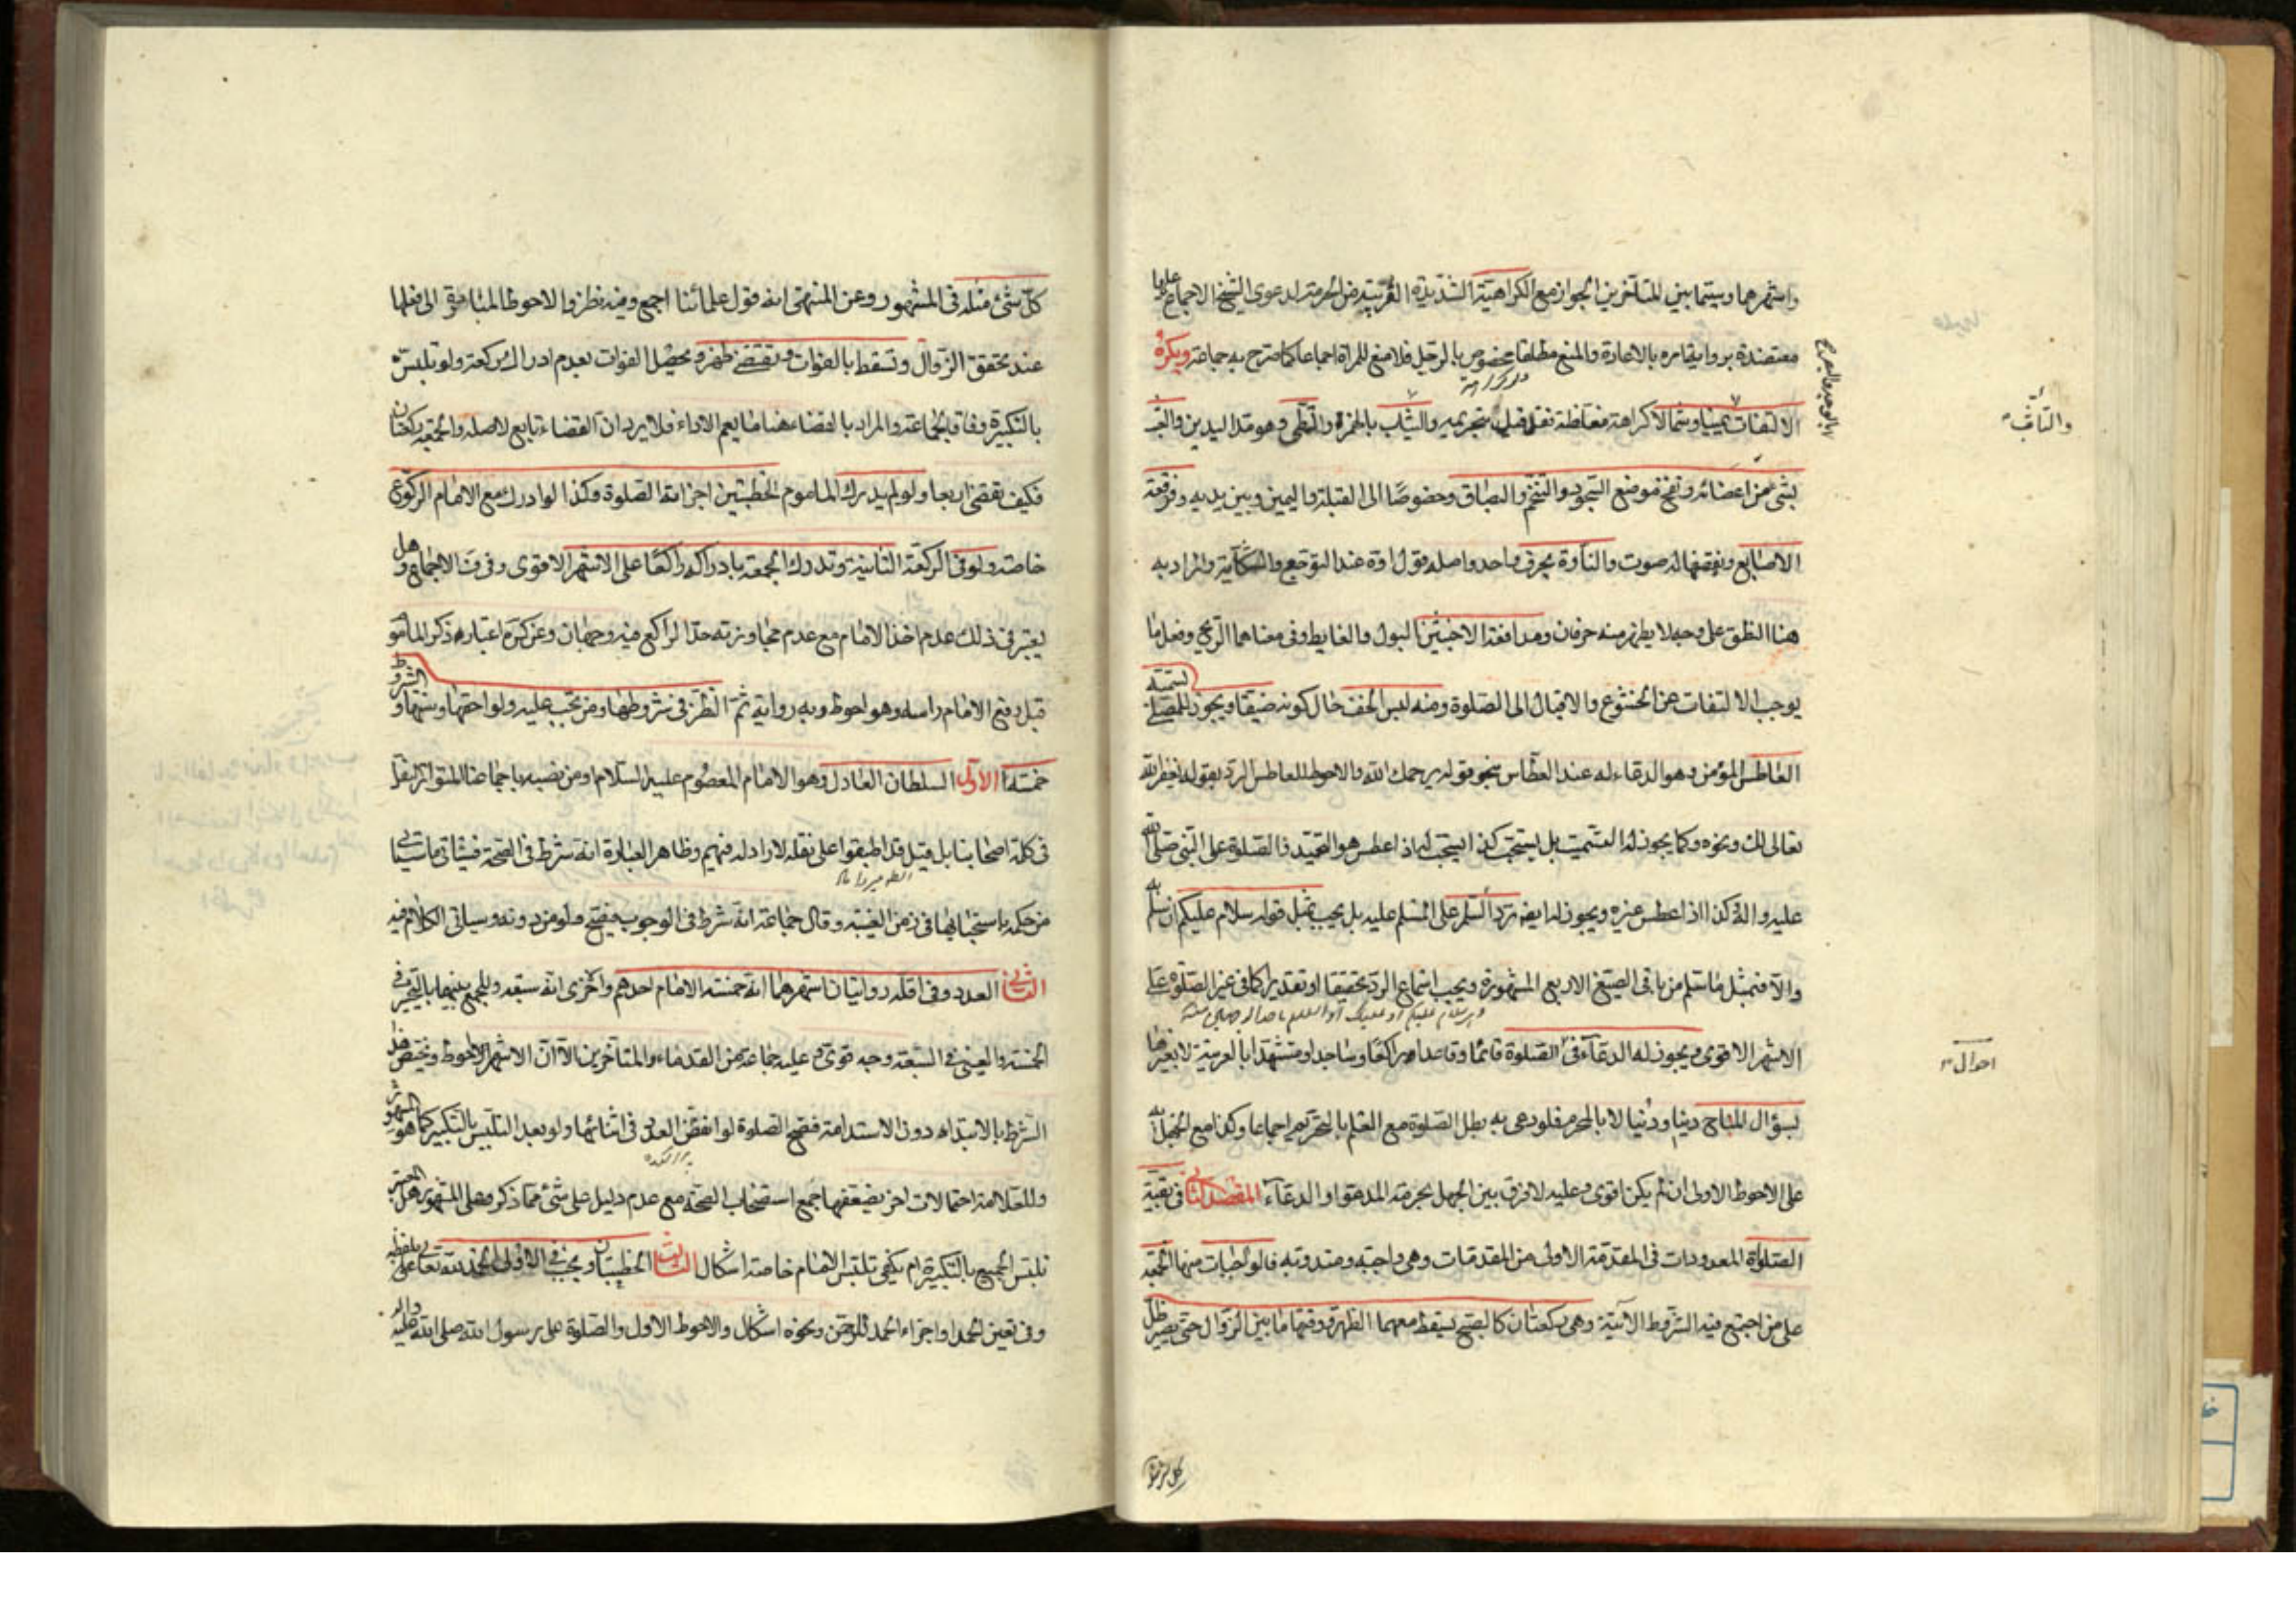 واشهرهما وسيما بين المتأخرين الجواز مع الكراهية الشديدة القريبة من الحرمة لدعوى الشيخ الاجماع عليها
معتضدة برواية امره بالاعادة والمنع مطلقا مخصوص بالرجل فلا منع للمراة اجماعا كما صرح به جماعة ويكره
الالتفات يمينا وشمالا كراهة مغلظة فقد قيل بتحريمه والتثأب بالهمزة والتمطى وهو مد اليدين والعبث
والتأثب
بشئ من اعضائه ونفخ موضع السجود والتنخم والبصاق وخصوصا الى القبلة واليمين وبين يديه وفرقعة
الاصابع ونقضها لصوت والتأوه بحرف واحد واصله قول اوه عند التوجع والشكاية والمراد به
هنا النطق على وجه لا يظهر منه حرفان ومدافعة الاخبثين البول والغايط وفى معناهما الريح وفعل ما
يوجب الالتفات عن الخشوع والاقبال الى الصلوة ومنه لبس الخف حال كونه ضيقا ويجوز للمصلى تسميت
العاطس المؤمن وهو الدعاء له عند العطاس بنحو قوله يرحمك الله والاحوط للعاطس الرد بقوله يغفر الله
تعالى لك ونحوه وكما يجوز له التسميت بل يستحب كذا يستحب له اذا عطس هو التحميد والصلوة على النبى صلى الله
عليه واله وكذا اذا عطس غيره ويجوز له ايضا رد السلم على المسلم عليه بل يجب بمثل قوله سلام عليكم ان سلم به
والا فبمثل ما سلم من باقى الصيغ الاربع المشهورة ويجب اسماع الرد تحقيقا او تقديرا كما فى غير الصلوة على
الاشهر الاقوى ويجوز له الدعاء فى الصلوة قائما وقاعدا وراكعا وساجدا ومتشهدا بالعربية لا بغيرها
احوال
بسؤال المباح دينا ودنيا لا بالمحرم فلو دعى به بطل الصلوة مع العلم بالتحريم اجماعا وكذا مع الجهل به
على الاحوط الاولى ان لم يكن اقوى وعليه لا فرق بين الجهل بحرمة المدعو او الدعاء المقصد الثانى فى بقية
الصلوة المعدودات فى المقدمة الاولى من المقدمات وهى واجبة ومندوبة فالواجبات منها الجمعة
على من اجتمع فيه الشروط الاتية وهى ركعتان كالصبح يسقط معهما الظهر ووقتها ما بين الزوال حتى يصير ظل
كل شئ مثله فى المشهور وعن المنتهى انه قول علمائنا اجمع وفيه نظر والاحوط المبادرة الى فعلها
عند تحقق الزوال وتسقط بالفوات وتقضى ظهرا ويحصل الفوات بعدم ادراك ركعة ولو تلبس
بالتكبيرة وفاقا لجماعة والمراد بالقضاء هنا ما يعم الاداء فلا يرد ان القضاء تابع لاصله والجمعة ركعتان
فكيف تقضى اربعا ولو لم يدرك الماموم الخطبتين اجزاته الصلوة وكذا لو ادرك مع الامام الركوع
خاصة ولو فى الركعة الثانية وتدرك الجمعة بادراكه راكعا على الاشهر الاقوى وفى ف الاجماع وهل
يعتبر فى ذلك عدم اخذ الامام مع عدم مجاوزته حد الراكع فيه وجهان وعن كره اعتباره ذكر الماموم
قبل رفع الامام راسه وهو احوط وبه رواية ثم النظر فى شروطها ومن تجب عليه ولواحقها وسننها والشروط
خمسة الاول السلطان العادل وهو الامام المعصوم عليه السلام او من نصبه باجماعنا المتواتر نقله
فى كلمة اصحابنا بل قيل قد اطبقوا على نقله لا راد له فيهم وظاهر العبارة انه شرط فى الصحة فيشاتى ما سياتى
من حكمه باستحبابها فى زمن الغيبة وقال جماعة انه شرط فى الوجوب فيصح ولو من دونه وسياتى الكلام فيه
الثانى العدد وفى اقله روايتان اشهرهما انه خمسة الامام احدهم والاخرى انه سبعة وللجمع بينهما بالتخيير فى
الخمسة والعينى فى السبعة وجه قوى وعليه جماعة من القدماء والمتاخرين الا ان الاشهر الاحوط ويختص هذا
الشرط بالابتداء دون الاستدامة فتصح الصلوة لو انفض العدد فى اثنائها ولو بعد التلبس بالتكبير كما هو المشهور
وللعلامة احتمالات اخر يضعفها جمع استصحاب الصحة مع عدم دليل على شئ مما ذكر وعلى المشهور هل المعتبر
تلبس الجميع بالتكبيرة ام يكفى تلبس الامام خاصة اشكال الثالث الخطبتان ويجب فى الاولى الحمد لله تعالى بلفظه
وفى تعين الحمد او اجزاء الحمد للرحمن ونحوه اشكال والاحوط الاول والصلوة على رسول الله صلى الله عليه واله
كل شئ